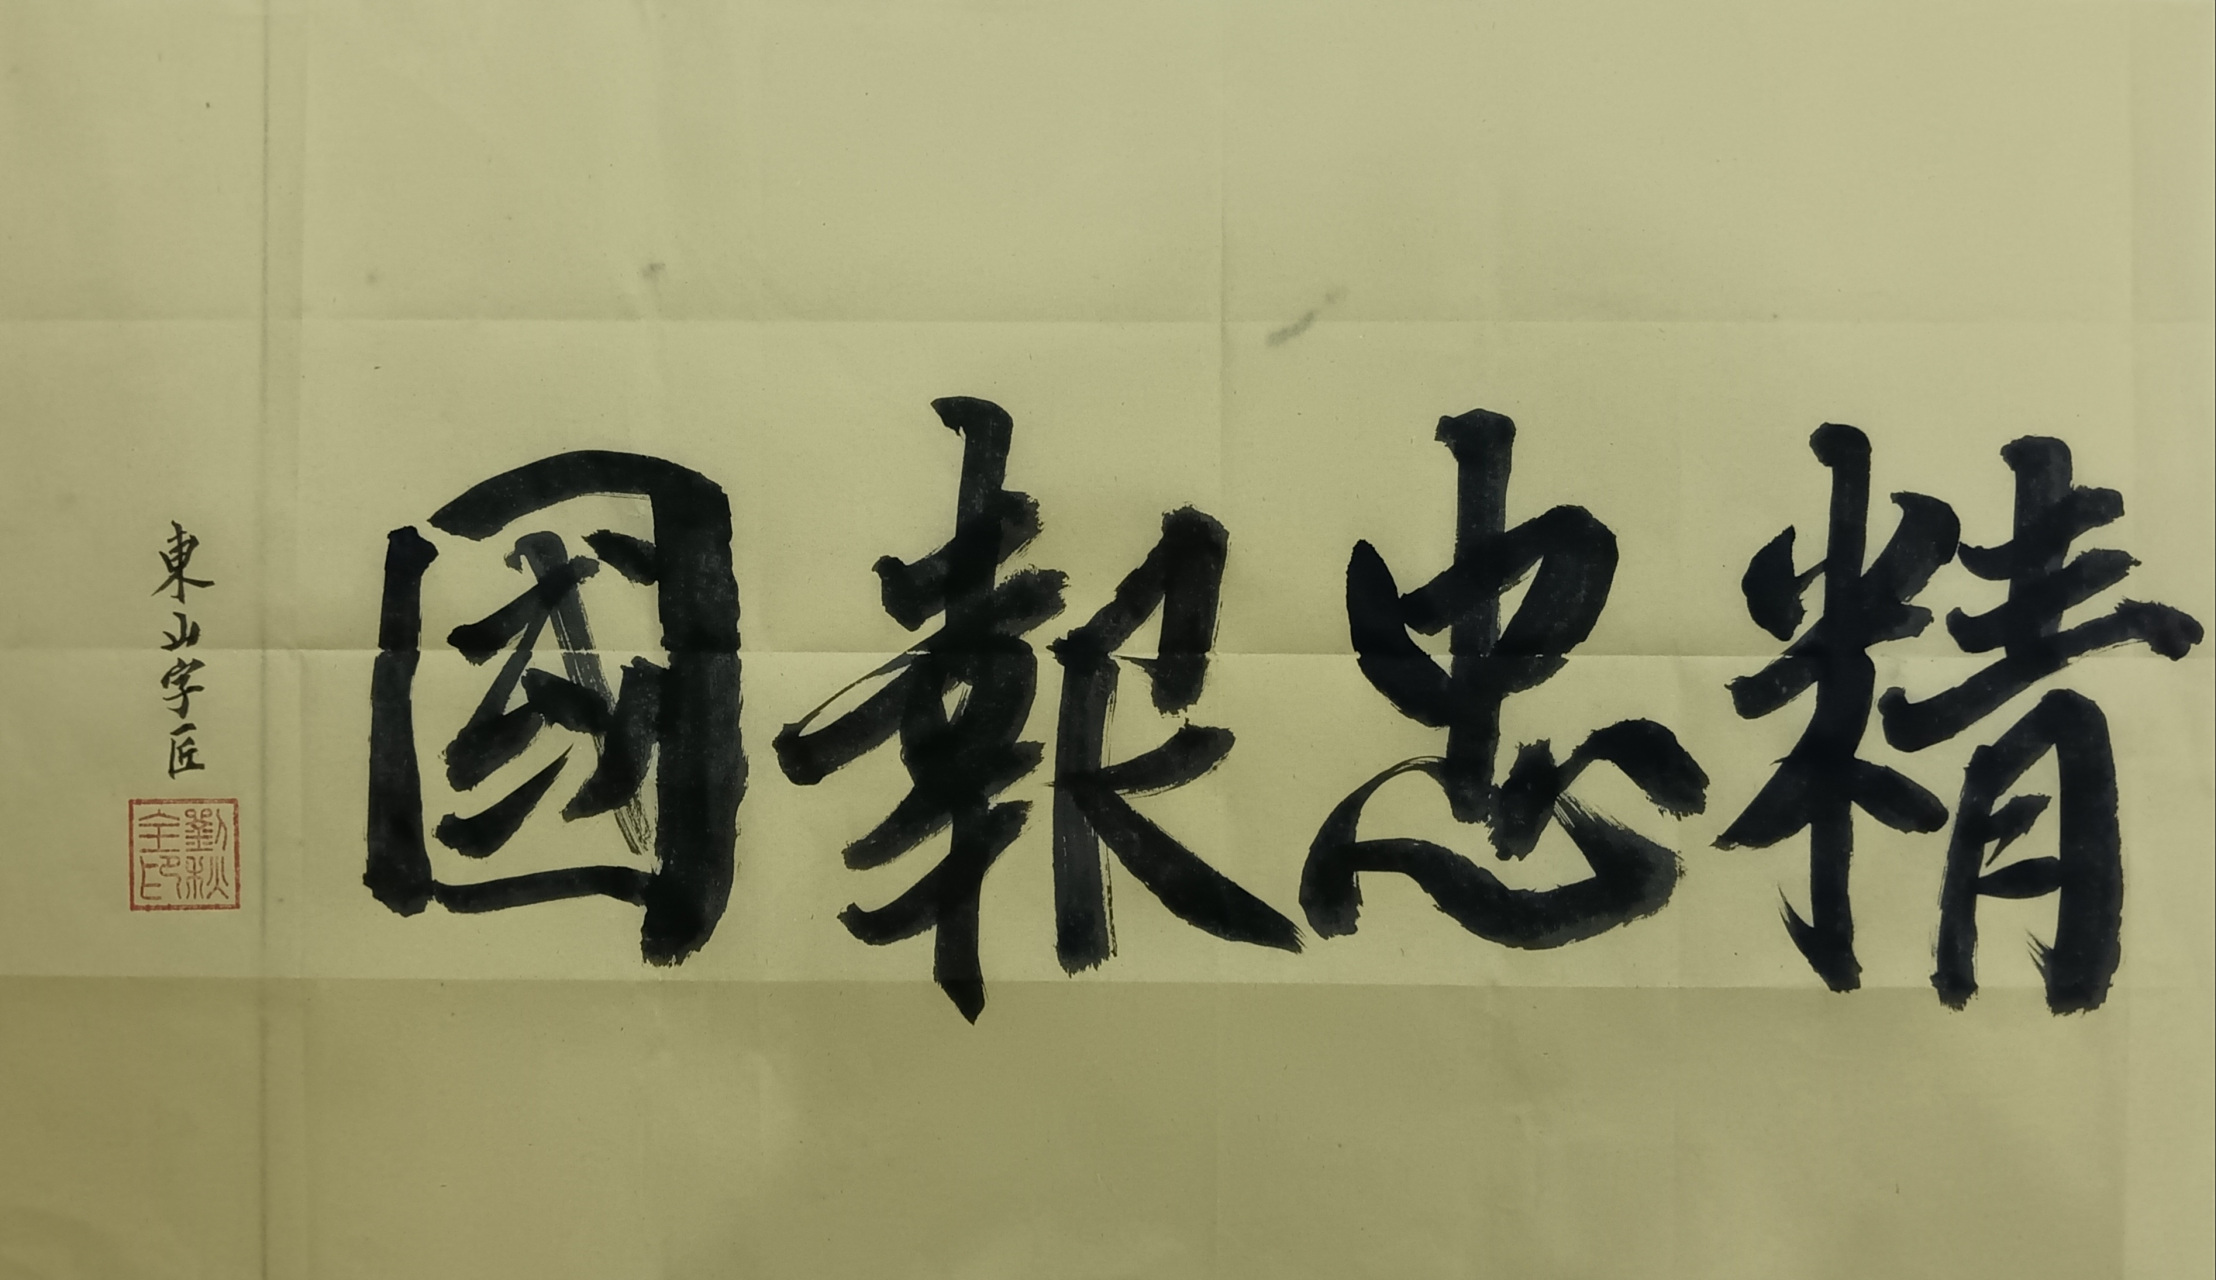 精忠報國
東山字匠
劉秋全印